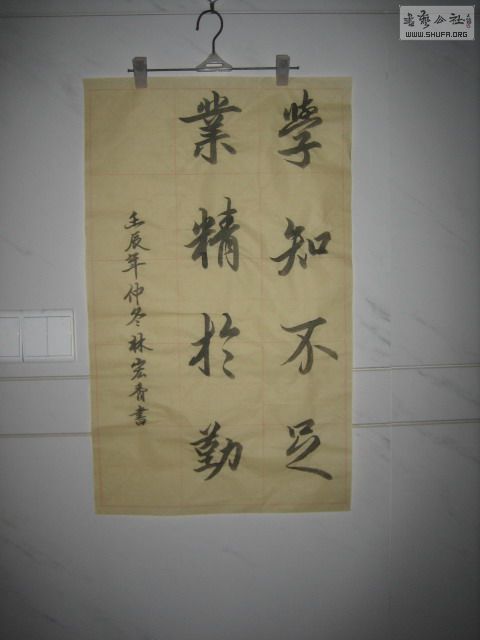 學知不足
業精於勤
壬辰年仲冬林宏青書
書藝公社
WWW.SHUFA.ORG